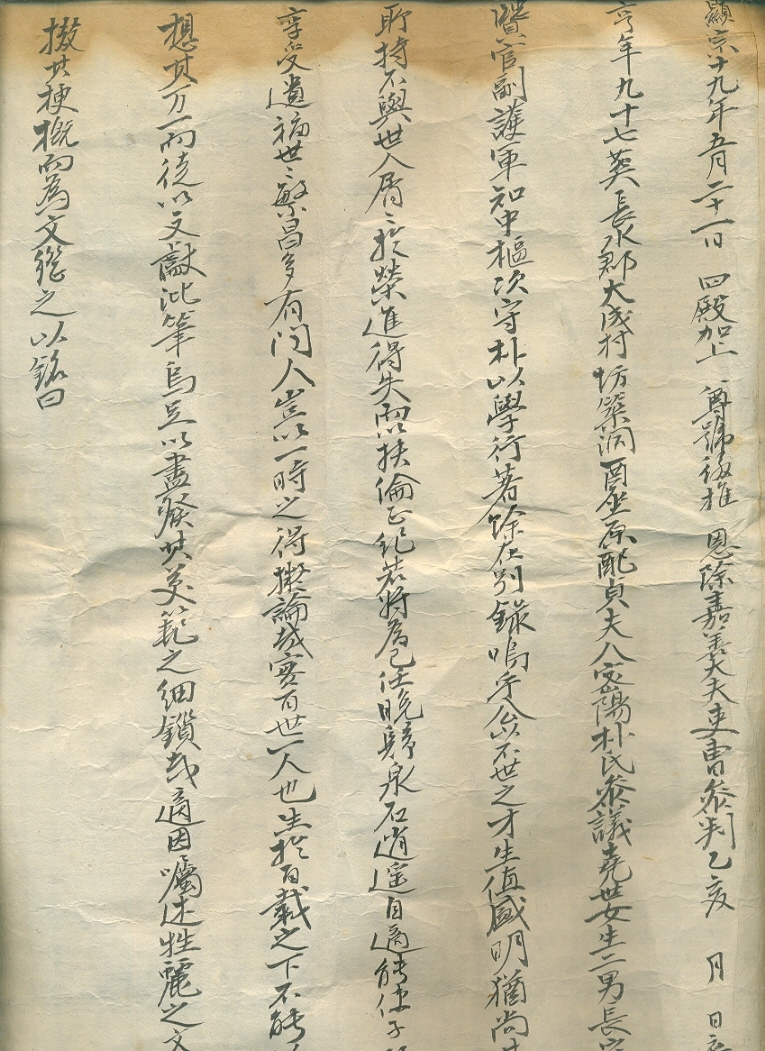 顯宗十九年五月二十一日 四殿加上 尊號後推 恩除嘉善大夫吏曹叅判乙亥 月 日
享年九十七葬長水郡大成村坊築洞酉坐原配貞夫人密陽朴氏叅議堯世女生二男長
賢宣副護軍知中樞次守朴以學行著餘在別錄嗚乎公以不世之才生值盛明猶尚
所持不與世人屑〻於榮進得失而以扶倫正紀若將爲己任晩歸泉石逍遙自適能使子
享受遺福世〻繁昌多有門人豈以一時之得擬論哉實百世一人也生於百載之下不能
想其万一而徒以文獻泚筆烏足以盡發其美範之細鎖哉適因囑述牲麗之文
掇其梗槪而爲文繼之以銘曰